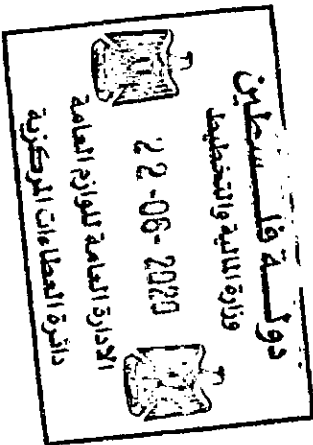 دولة فلسطين
وزارة المالية والتخطيط
22-06-2020
الادارة العامة للوازم العامة
دائرة العطاءات المركزية